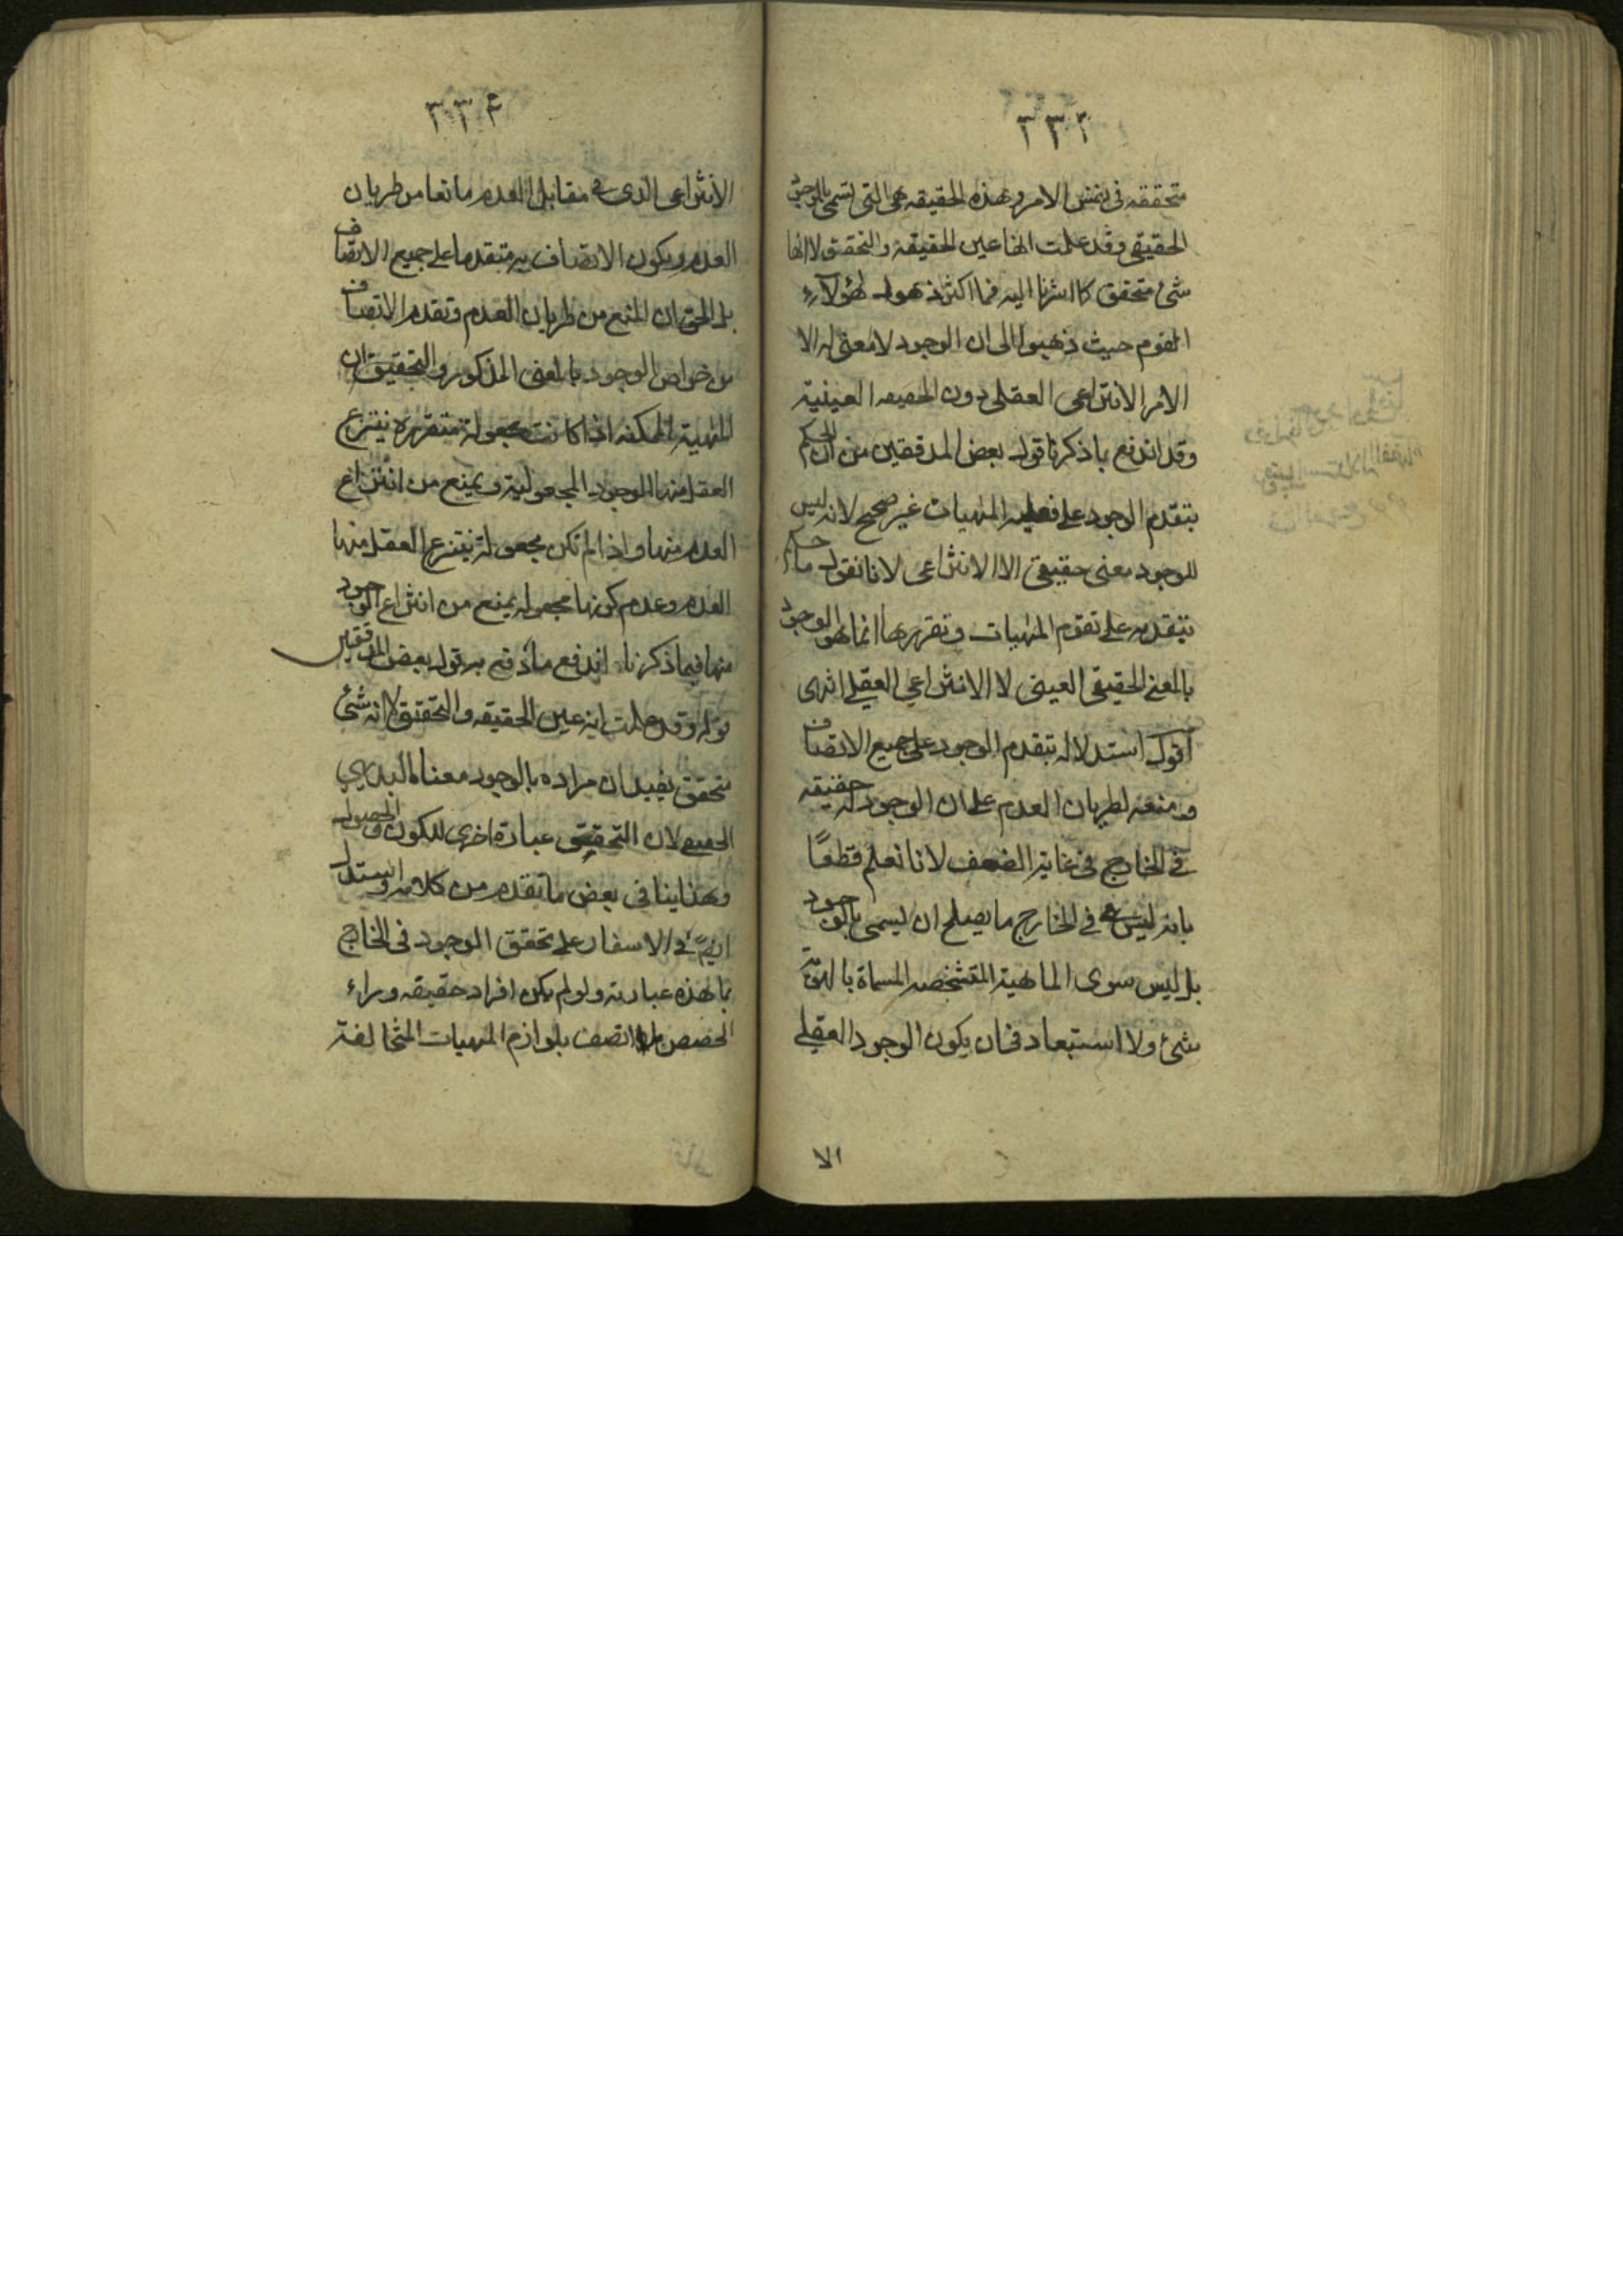 ٣٣٣
متحققه فى نفس الامر وهذه الحقيقه هى التى تسمى بالوجود
الحقيقى وقد علمت انها عين الحقيقة والتحقق لا انها
شئ متحقق كما اشرنا اليه فما اكثر ذهول هؤلاء
القوم حيث ذهبوا الى ان الوجود لا معنى له الا
الامر الانتزاعى العقلى دون الحقيقه العينية
وقد اندفع بما ذكرنا قول بعض المدققين من ان الحكم
بتقدم الوجود على فعليه المهيات غير صحيح لانه ليس
للوجود معنى حقيقى الا الانتزاعى لانا نقول ما حكم
بتقدمه على تقوم المهيات وتقررها انما هو الوجود
بالمعنى الحقيقى العينى لا الانتزاعي العقلى انتهى
اقول استدلاله بتقدم الوجود على جميع الاتصاف
ومنعه لطريان العدم على ان الوجود له حقيقه
فى الخارج فى غاية الضعف لانا نعلم قطعًا
بانه ليس فى الخارج ما يصلح ان يسمى بالوجود
بل ليس سوى الماهية المتشخصه المسماة بالهوية
شئ ولا استبعاد فى ان يكون الوجود العقلى
الا
٣٣٤
الانتزاعى الذى فى مقابل العدم مانعا من طريان
العدم ويكون الاتصاف به متقدما على جميع الاتصاف
بل الحق ان المنع من طريان العدم وتقدم الاتصاف
من خواص الوجود بالمعنى المذكور والتحقيق ان
المهية الممكنه اذا كانت مجعولة متقررة ينتزع
العقل منها الوجود المجعولية ويمنع من انتزاع
العدم منها واذا لم تكن مجعولة ينتزع العقل منها
العدم وعدم كونها مجعوله يمنع من انتزاع الوجود
منها فبما ذكرنا اندفع ما دفع به قول بعض المدققين
قوله وقد علمت انه عين الحقيقه والتحقق لا انه شئ
متحقق يفيد ان مراده بالوجود معناه البديهي
لان التحقق عبارة اخرى للكون والحصول
وهذا ينافى بعض ما تقدم من كلامه واستدل
ايضً فى الاسفار على تحقق الوجود فى الخارج
بما هذه عبارته ولو لم يكن افراد حقيقه وراء
الحصص لما اتصف بلوازم المهيات المتخالفة